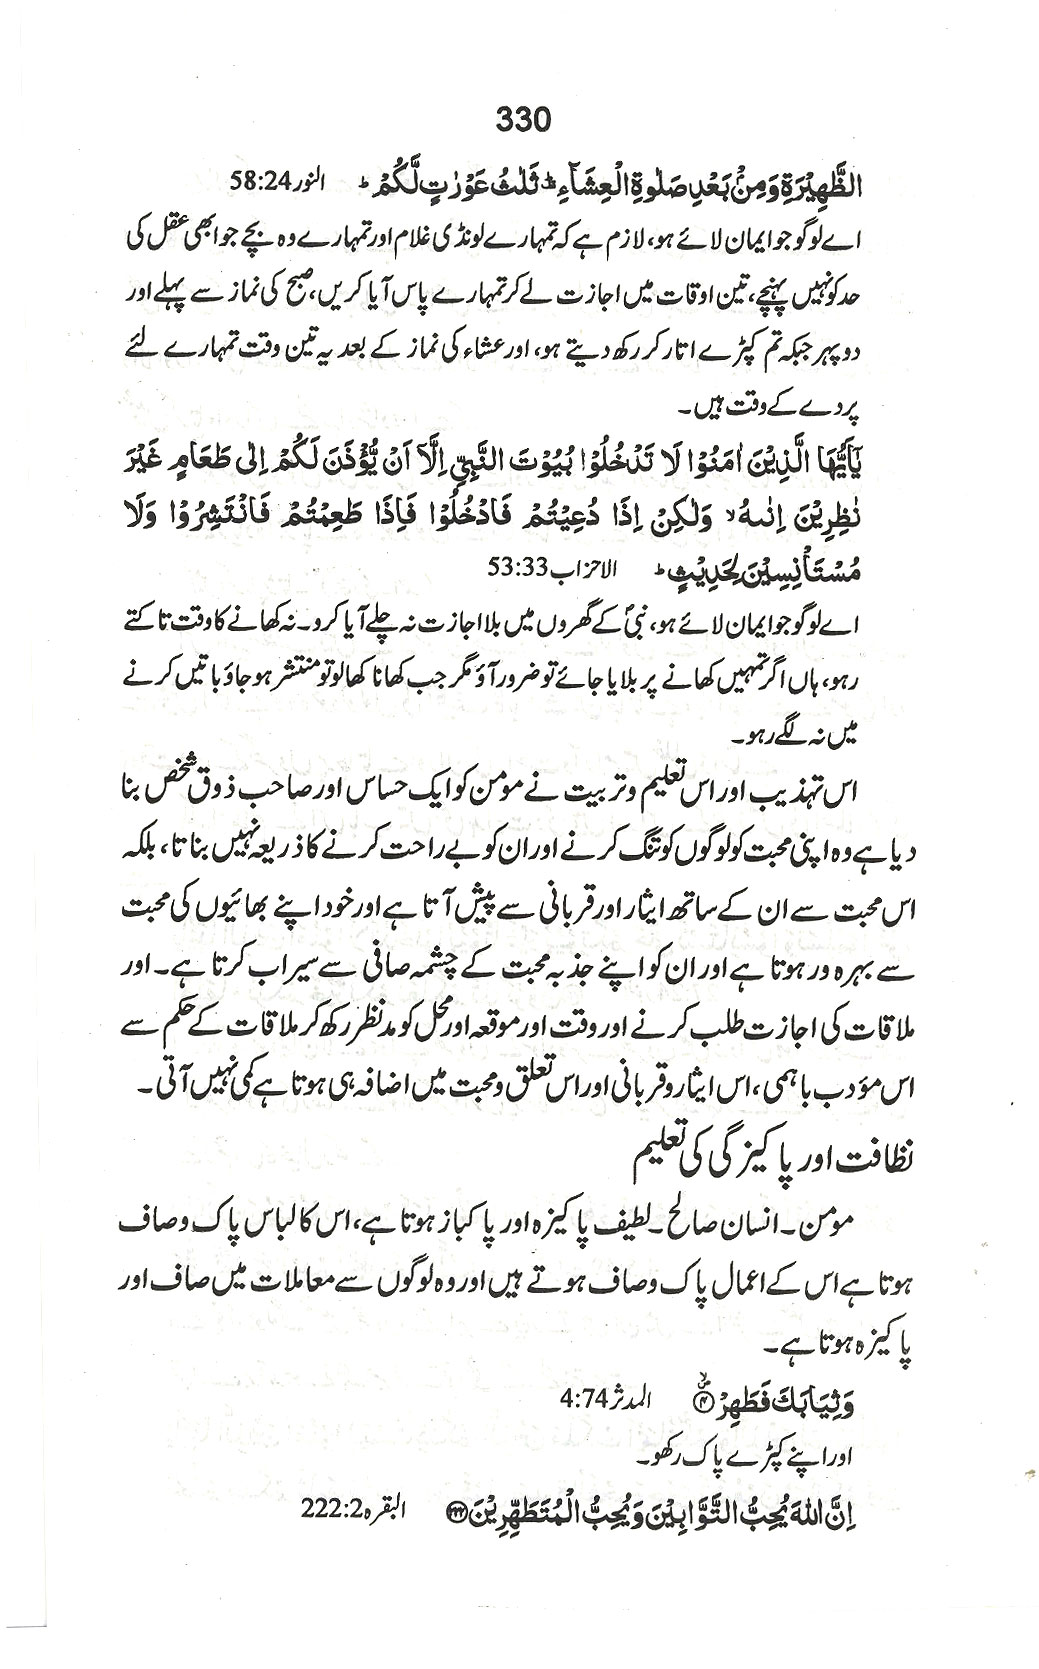 330
الظَّهِيْرَةِ وَمِنْۢ بَعْدِ صَلٰوةِ الْعِشَآءِ ؕ ثَلٰثُ عَوْرٰتٍ لَّكُمْ ؕ النور 58:24
اے لوگو جو ایمان لائے ہو، لازم ہے کہ تمہارے لونڈی غلام اور تمہارے وہ بچے جو ابھی عقل کی
حد کو نہیں پہنچے، تین اوقات میں اجازت لے کر تمہارے پاس آیا کریں، صبح کی نماز سے پہلے اور
دوپہر جبکہ تم کپڑے اتار کر رکھ دیتے ہو، اور عشاء کی نماز کے بعد یہ تین وقت تمہارے لئے
پردے کے وقت ہیں۔
يٰۤاَيُّهَا الَّذِيْنَ اٰمَنُوْا لَا تَدْخُلُوْا بُيُوْتَ النَّبِيِّ اِلَّاۤ اَنْ يُّؤْذَنَ لَكُمْ اِلٰى طَعَامٍ غَيْرَ
نٰظِرِيْنَ اِنٰىهُ ۙ وَلٰكِنْ اِذَا دُعِيْتُمْ فَادْخُلُوْا فَاِذَا طَعِمْتُمْ فَانْتَشِرُوْا وَلَا
مُسْتَاْنِسِيْنَ لِحَدِيْثٍ ؕ الاحزاب 53:33
اے لوگو جو ایمان لائے ہو، نبیؐ کے گھروں میں بلا اجازت نہ چلے آیا کرو۔ نہ کھانے کا وقت تاکتے
رہو، ہاں اگر تمہیں کھانے پر بلایا جائے تو ضرور آؤ مگر جب کھانا کھالو تو منتشر ہو جاؤ باتیں کرنے
میں نہ لگے رہو۔
اس تہذیب اور اس تعلیم و تربیت نے مومن کو ایک حساس اور صاحب ذوق شخص بنا
دیا ہے وہ اپنی محبت کو لوگوں کو تنگ کرنے اور ان کو بے راحت کرنے کا ذریعہ نہیں بناتا، بلکہ
اس محبت سے ان کے ساتھ ایثار اور قربانی سے پیش آتا ہے اور خود اپنے بھائیوں کی محبت
سے بہرہ ور ہوتا ہے اور ان کو اپنے جذبہ محبت کے چشمہ صافی سے سیراب کرتا ہے۔ اور
ملاقات کی اجازت طلب کرنے اور وقت اور موقعہ اور محل کو مدنظر رکھ کر ملاقات کے حکم سے
اس مؤدب باہمی، اس ایثار و قربانی اور اس تعلق و محبت میں اضافہ ہی ہوتا ہے کمی نہیں آتی۔
نظافت اور پاکیزگی کی تعلیم
مومن۔ انسان صالح۔ لطیف پاکیزہ اور پاکباز ہوتا ہے، اس کا لباس پاک و صاف
ہوتا ہے اس کے اعمال پاک و صاف ہوتے ہیں اور وہ لوگوں سے معاملات میں صاف اور
پاکیزہ ہوتا ہے۔
وَثِيَابَكَ فَطَهِّرْ ۙ۝۴ المدثر 4:74
اور اپنے کپڑے پاک رکھو۔
اِنَّ اللّٰهَ يُحِبُّ التَّوَّابِيْنَ وَيُحِبُّ الْمُتَطَهِّرِيْنَ ۝۲۲۲ البقرہ 222:2